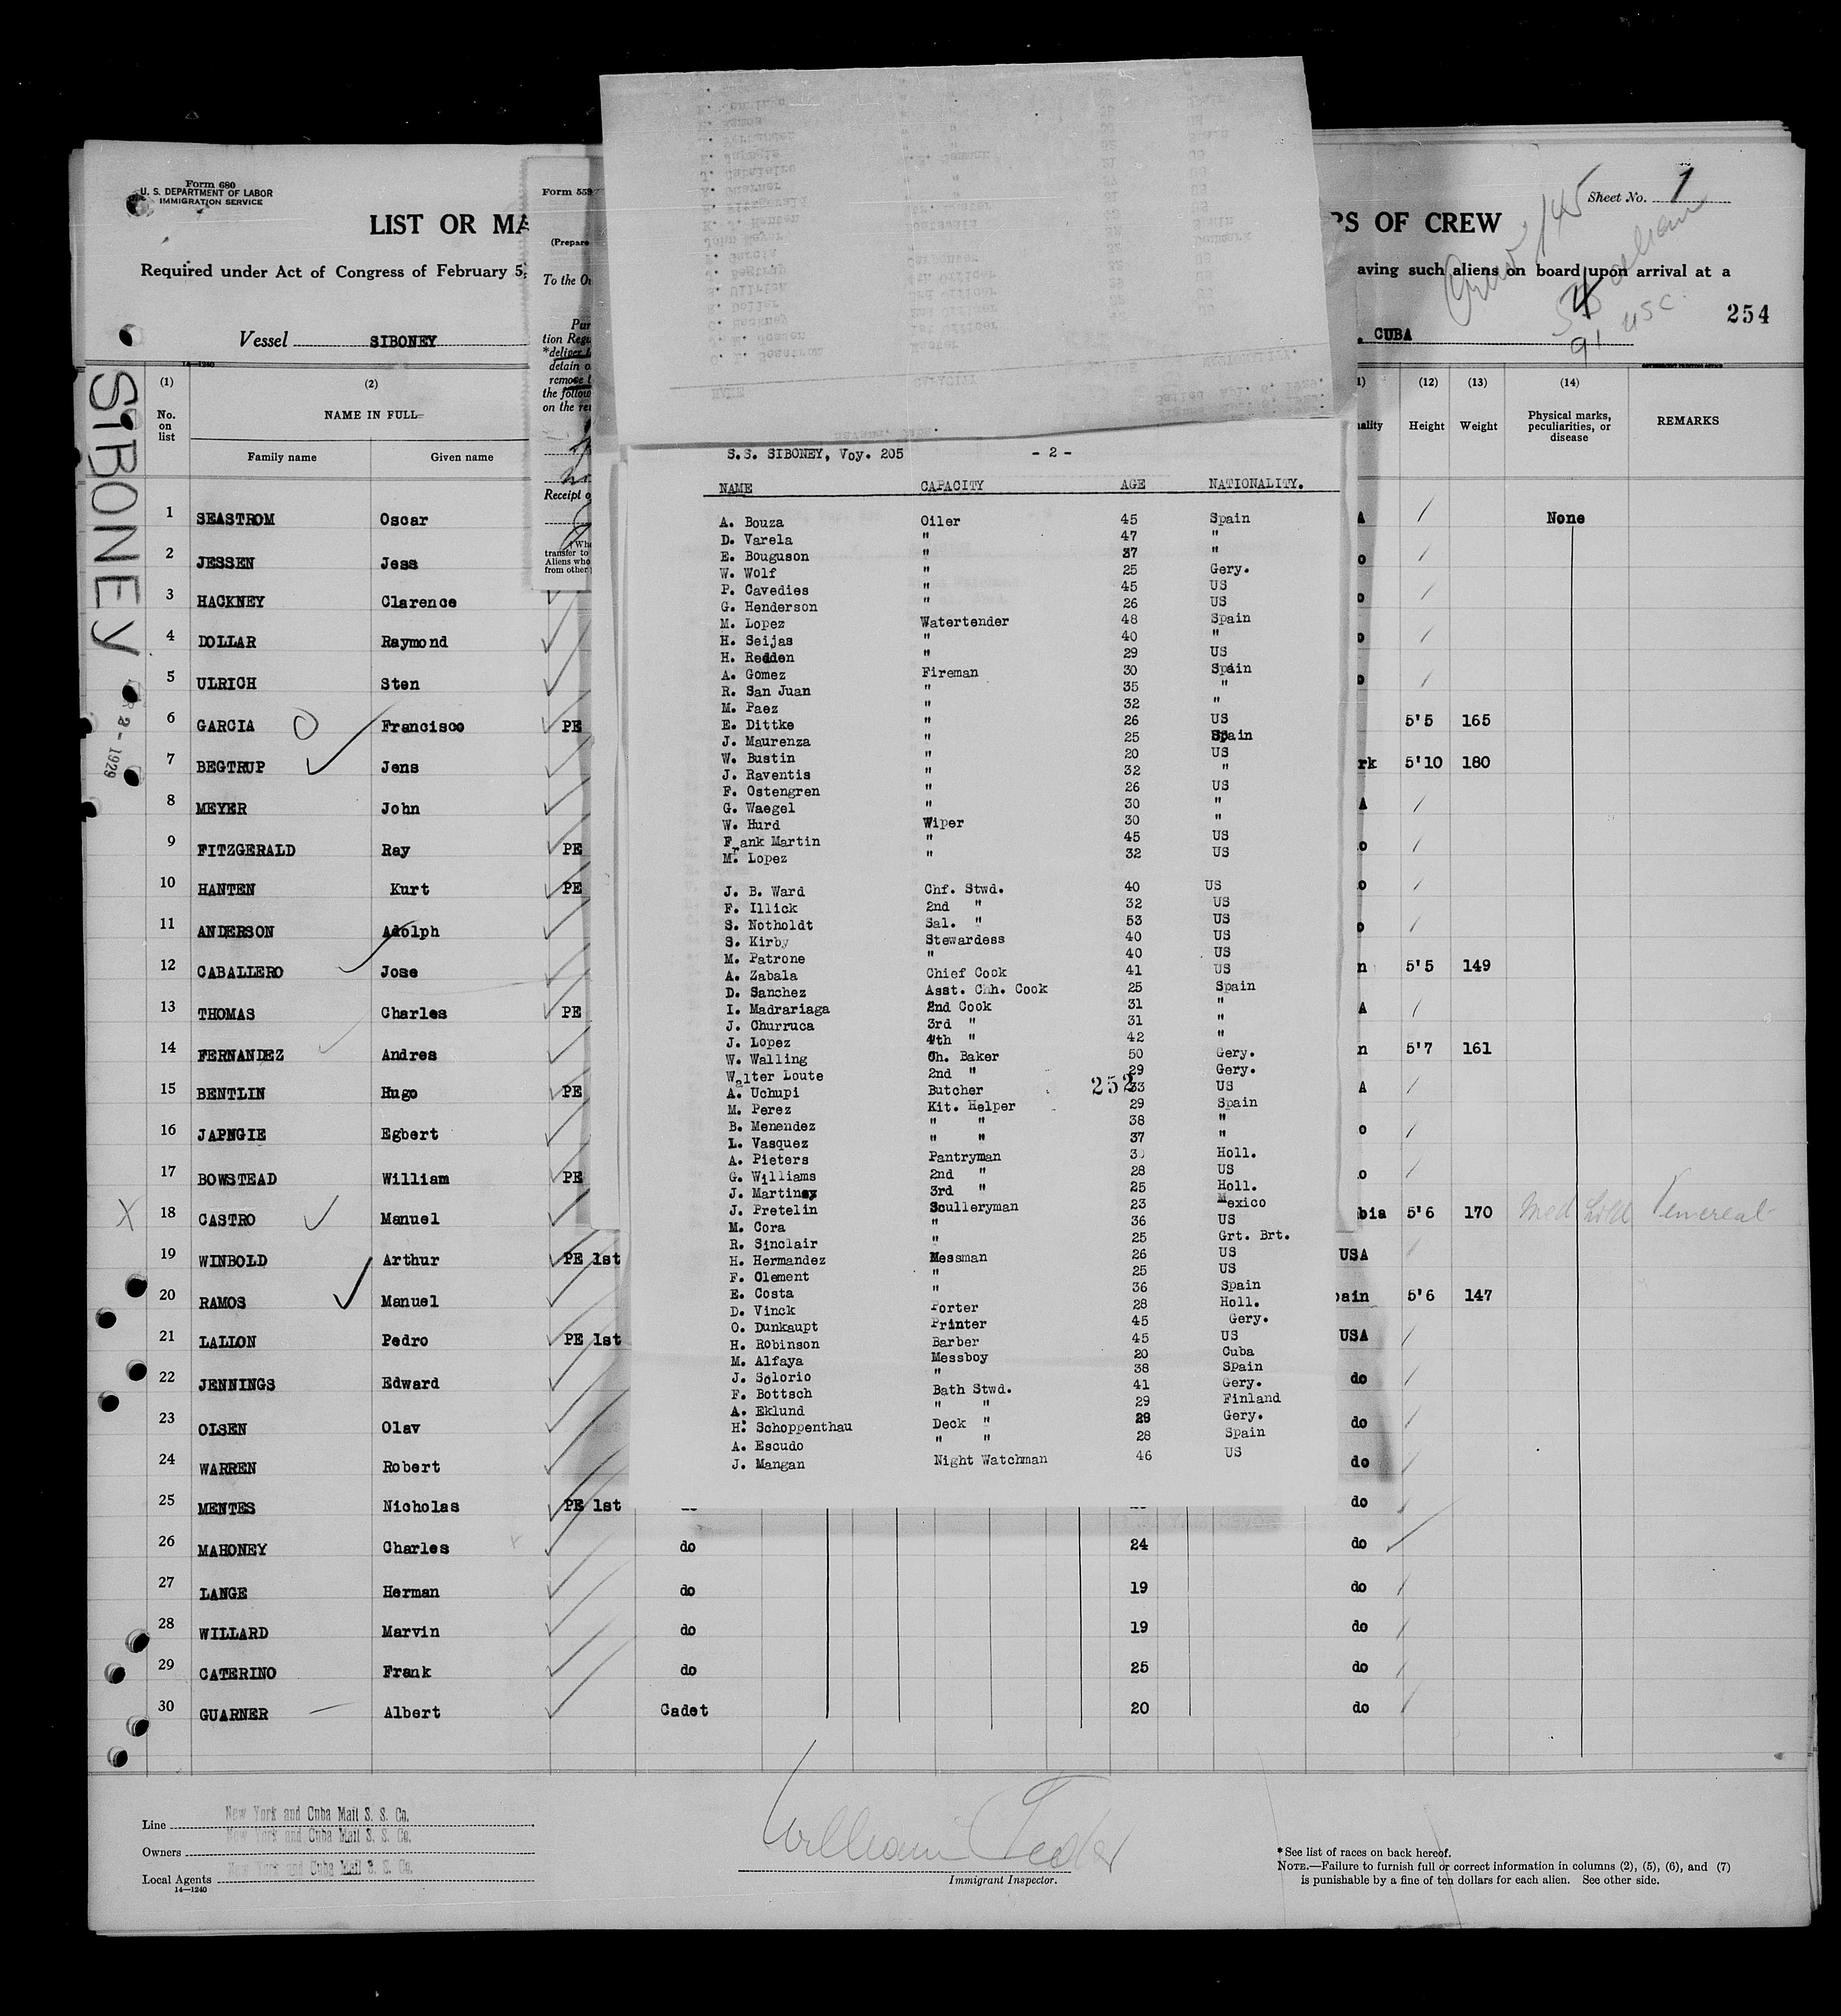 Form 680
U. S. DEPARTMENT OF LABOR
IMMIGRATION SERVICE
LIST OR MA
Required under Act of Congress of February 5,
Vessel SIBONEY
14—1240
SIBONEY
2 - 1929
(1) (2)
No. on list
NAME IN FULL
Family name Given name
1 SEASTROM Oscar
2 JESSEN Jess
3 HACKNEY Clarence
4 DOLLAR Raymond
5 ULRICH Sten
6 GARCIA Francisco PE
7 BEGTRUP Jens
8 MEYER John
9 FITZGERALD Ray PE
10 HANTEN Kurt PE
11 ANDERSON Adolph
12 CABALLERO Jose
13 THOMAS Charles PE
14 FERNANDEZ Andres
15 BENTLIN Hugo PE
16 JAPNGIE Egbert
17 BOWSTEAD William PE
X 18 CASTRO Manuel
19 WINBOLD Arthur PE 1st
20 RAMOS Manuel
21 LALLON Pedro PE 1st
22 JENNINGS Edward
23 OLSEN Olav
24 WARREN Robert
25 MENTES Nicholas PE 1st
26 MAHONEY Charles do 24 do
27 LANGE Herman do 19 do
28 WILLARD Marvin do 19 do
29 CATERINO Frank do 25 do
30 GUARNER Albert Cadet 20 do
Form 559
(Prepare
To the O
Pur
tion Regu
*deliver
detain o
remove t
the follow
on the re
Receipt o
transfer to
Aliens who
from other
S.S. SIBONEY, Voy. 205 - 2 -
NAME CAPACITY AGE NATIONALITY.
A. Bouza Oiler 45 Spain
D. Varela " 47 "
E. Bouguson " 37 "
W. Wolf " 25 Gery.
P. Cavedies " 45 US
G. Henderson " 26 US
M. Lopez Watertender 48 Spain
H. Seijas " 40 "
H. Redden " 29 US
A. Gomez Fireman 30 Spain
R. San Juan " 35 "
M. Paez " 32 "
E. Dittke " 26 US
J. Maurenza " 25 Spain
W. Bustin " 20 US
J. Raventis " 32 "
F. Ostengren " 26 US
G. Waegel " 30 "
W. Hurd Wiper 30 "
Frank Martin " 45 US
M. Lopez " 32 US
J. B. Ward Chf. Stwd. 40 US
F. Illick 2nd " 32 US
S. Notholdt Sal. " 53 US
S. Kirby Stewardess 40 US
M. Patrone " 40 US
A. Zabala Chief Cook 41 US
D. Sanchez Asst. Chh. Cook 25 Spain
I. Madrariaga 2nd Cook 31 "
J. Churruca 3rd " 31 "
J. Lopez 4th " 42 "
W. Walling Ch. Baker 50 Gery.
Walter Loute 2nd " 29 Gery.
A. Uchupi Butcher 33 US
252
M. Perez Kit. Helper 29 Spain
B. Menendez " " 38 "
L. Vasquez " " 37 "
A. Pieters Pantryman Holl.
G. Williams 2nd " 28 US
J. Martinez 3rd " 25 Holl.
J. Pretelin Sculleryman 23 Mexico
M. Cora " 36 US
R. Sinclair " 25 Grt. Brt.
H. Hermandez Messman 26 US
F. Clement " 25 US
E. Costa " 36 Spain
D. Vinck Porter 28 Holl.
O. Dunkaupt Printer 45 Gery.
H. Robinson Barber 45 US
M. Alfaya Messboy 20 Cuba
J. Solorio " 38 Spain
F. Bottsch Bath Stwd. 41 Gery.
A. Eklund " " 29 Finland
H. Schoppenthau Deck " 29 Gery.
A. Escudo " " 28 Spain
J. Mangan Night Watchman 46 US
PS OF CREW
Sheet No. 1
Crew 145
aving such aliens on board upon arrival at a
54 alien
91 USC
254
CUBA
(12) (13) (14)
ality Height Weight Physical marks, peculiarities, or disease REMARKS
A None
o
o
o
o
5'5 165
rk 5'10 180
A
o
o
o
n 5'5 149
A
n 5'7 161
A
o
o
bia 5'6 170 Med hold Venereal
USA
pain 5'6 147
USA
do
do
do
do
Line New York and Cuba Mail S. S. Co.
Owners New York and Cuba Mail S. S. Co.
Local Agents New York and Cuba Mail S. S. Co.
14—1240
William
Immigrant Inspector.
*See list of races on back hereof.
NOTE.—Failure to furnish full or correct information in columns (2), (5), (6), and (7)
is punishable by a fine of ten dollars for each alien. See other side.